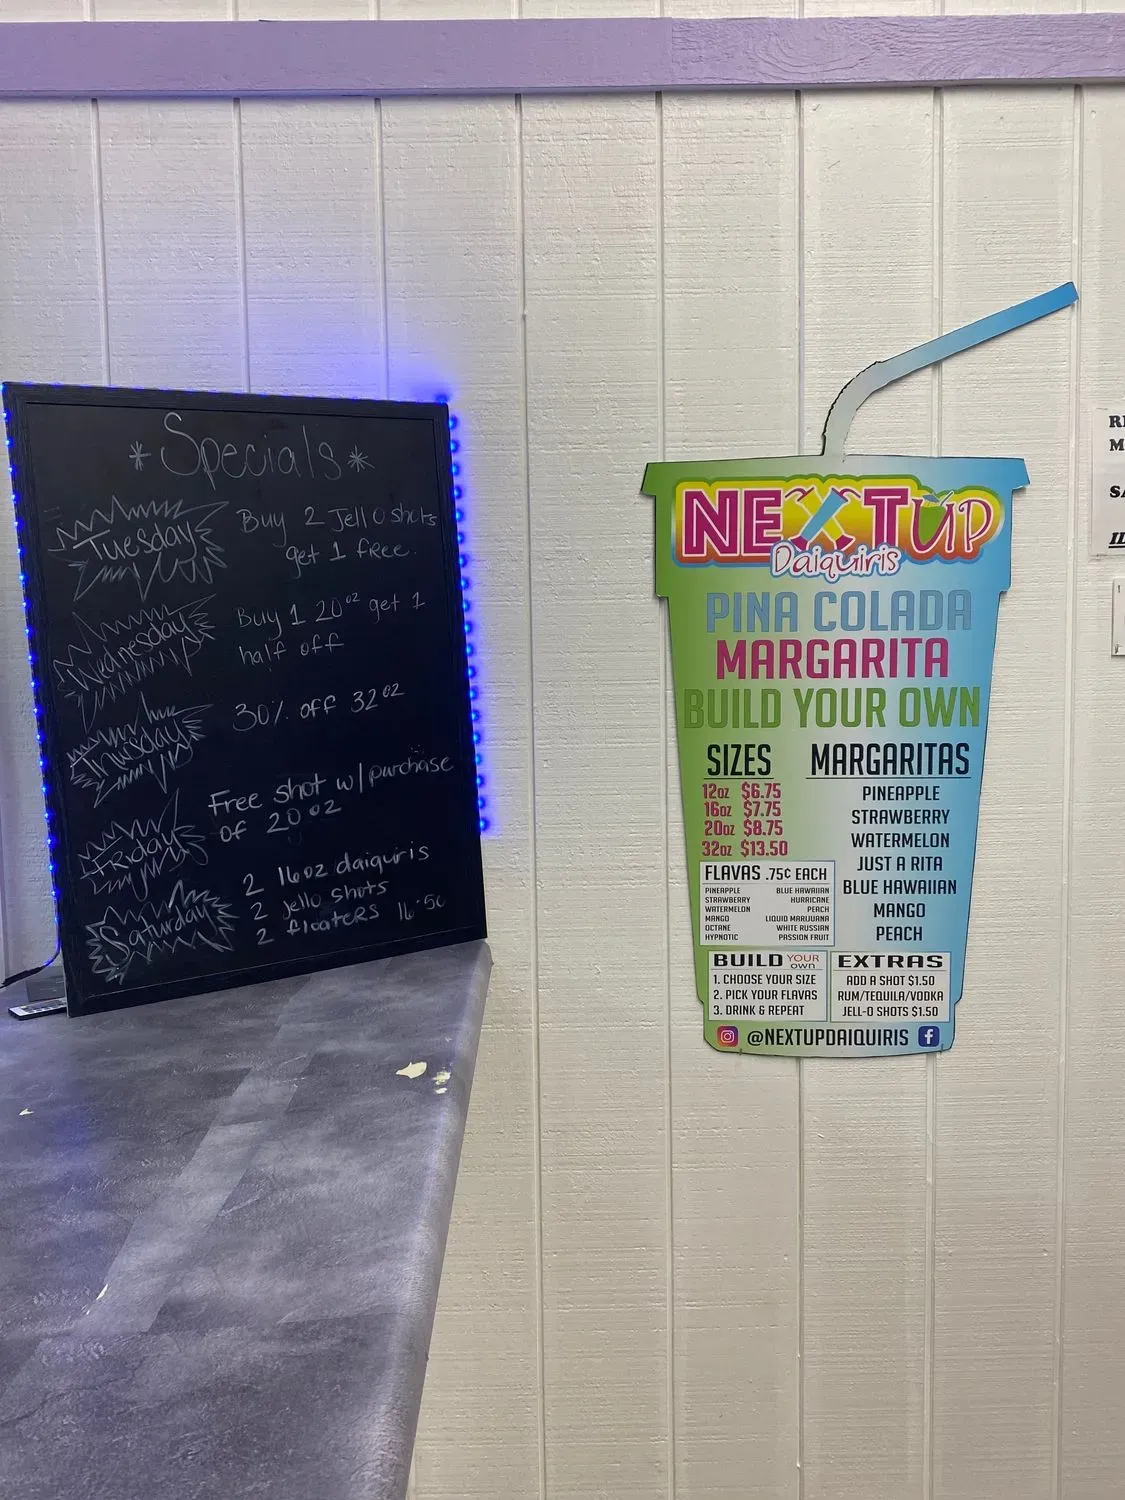 * Specials *
Tuesday
Buy 2 Jello shots
get 1 free.
Wednesday
Buy 1 20oz get 1
half off
Thursday
30% off 32oz
Friday
Free shot w/purchase
of 20oz
Saturday
2 16oz daiquiris
2 jello shots
2 floaters 16.50
NEXTUP
Daiquiris
PINA COLADA
MARGARITA
BUILD YOUR OWN
SIZES
12oz $6.75
16oz $7.75
20oz $8.75
32oz $13.50
MARGARITAS
PINEAPPLE
STRAWBERRY
WATERMELON
JUST A RITA
BLUE HAWAIIAN
MANGO
PEACH
FLAVAS .75¢ EACH
PINEAPPLE
STRAWBERRY
WATERMELON
MANGO
OCTANE
HYPNOTIC
BLUE HAWAIIAN
HURRICANE
PEACH
LIQUID MARIJUANA
WHITE RUSSIAN
PASSION FRUIT
BUILD YOUR OWN
1. CHOOSE YOUR SIZE
2. PICK YOUR FLAVAS
3. DRINK & REPEAT
EXTRAS
ADD A SHOT $1.50
RUM/TEQUILA/VODKA
JELL-O SHOTS $1.50
@NEXTUPDAIQUIRIS